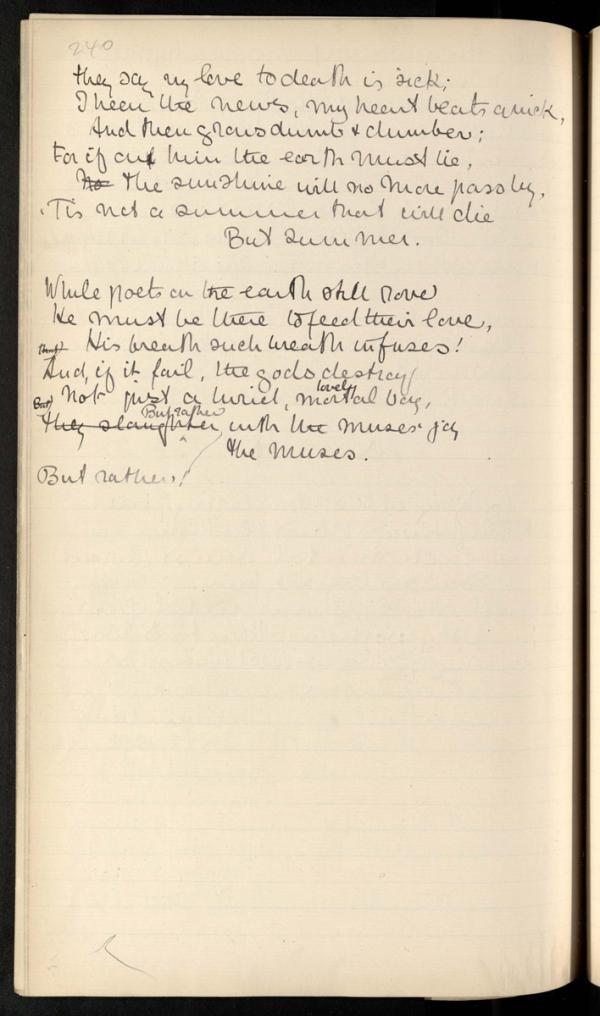 240
they say my love to death is sick;
I hear the news, my heart beats quick,
And then grows dumb & dumber;
For if on him the earth must lie,
No the sunshine will no more pass by,
'Tis not a summer that will die
But summer.
While poets on the earth still rove
He must be there to feed their love,
His breath such breath infuses!
And, if it fail, the gods destroy
lovely
But Not just a mortal boy,
But rather
they slaughter with the muses' joy
the muses.
But rather!